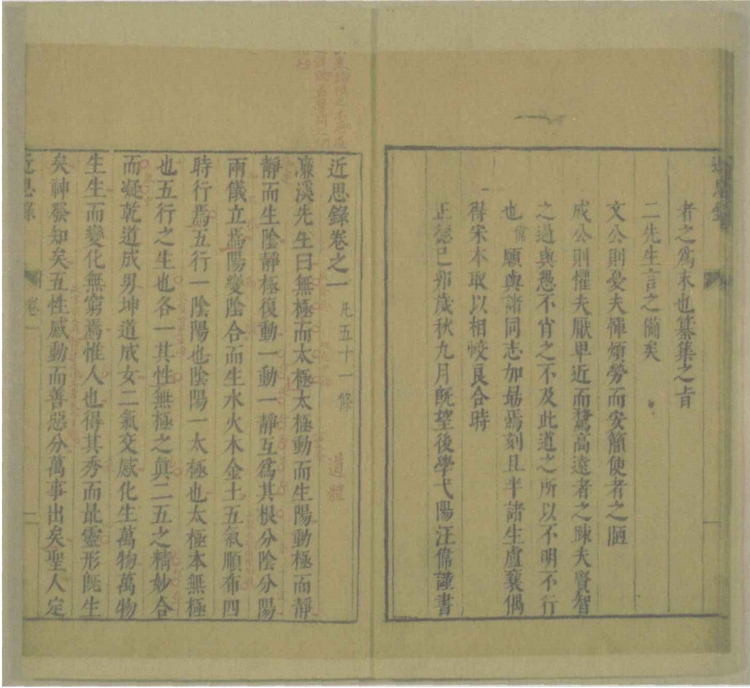 者之爲末也纂集之旨
二先生言之備矣
文公則憂夫憚煩勞而安簡便者之陋
成公則懼夫厭卑近而騖高遠者之陳夫賢智
之過與愚不肖之不及此道之所以不明不行
也偉願與諸同志加勗焉刻且半諸生盧襄偶
得宋本取以相校良合時
正德己卯歲秋九月旣望後學弋陽汪偉謹書
近思錄卷之一 凡五十一條 道體
濂溪先生曰無極而太極太極動而生陽動極而靜
靜而生陰靜極復動一動一靜互爲其根分陰分陽
兩儀立焉陽變陰合而生水火木金土五氣順布四
時行焉五行一陰陽也陰陽一太極也太極本無極
也五行之生也各一其性無極之眞二五之精妙合
而凝乾道成男坤道成女二氣交感化生萬物萬物
生生而變化無窮焉惟人也得其秀而最靈形旣生
矣神發知矣五性感動而善惡分萬事出矣聖人定
近思錄 卷一 二